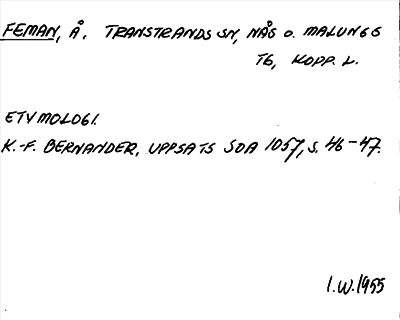 FEMAN, Å. TRANSTRANDS SN, NÅS O. MALUNGS
TG, KOPP. L.
ETYMOLOGI.
K.-F. BERNANDER, UPPSATS SOA 1057, S. 46-47.
I.W. 1955